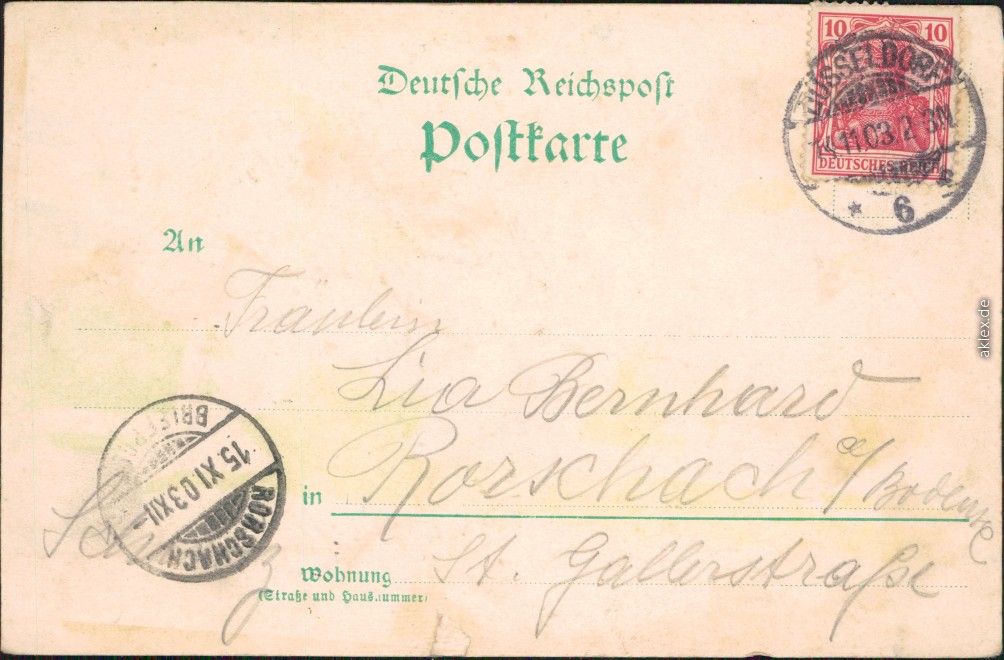 10 10
DEUTSCHES REICH
DÜSSELDORF
11.03.2-3N
* 6
Deutsche Reichspost
Postkarte
An
Fräulein
Lia Bernhard
in Rorschach a/Bodensee
Schweiz
Wohnung St. Gallerstraße
(Straße und Hausnummer)
BRIEF
15.XI.03.XII-
RORSCHACH
aklex.de